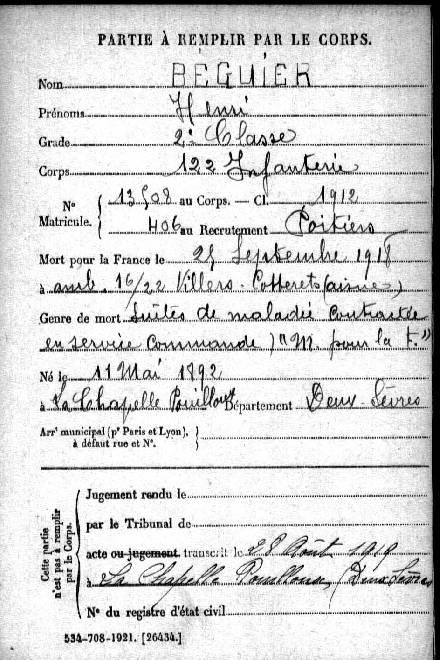 PARTIE À REMPLIR PAR LE CORPS.
Nom BEGUIER
Prénoms Henri
Grade 2e Classe
Corps 122 Infanterie
N° Matricule. 13508 au Corps. — Cl. 1912
406 au Recrutement Poitiers
Mort pour la France le 25 Septembre 1918
à amb. 16/22 Villers-Cotterets (aisne)
Genre de mort Suites de maladie contractée
en service commandé "M. pour la F."
Né le 11 Mai 1892
à La Chapelle Pouilloux Département Deux-Sèvres
Arr' municipal (pr Paris et Lyon),
à défaut rue et N°.
Cette partie n'est pas à remplir par le Corps.
Jugement rendu le
par le Tribunal de
acte ou jugement transcrit le 28 Août 1919
à La Chapelle Pouilloux (Deux Sèvres
N° du registre d'état civil
534-708-1921. [26434.]